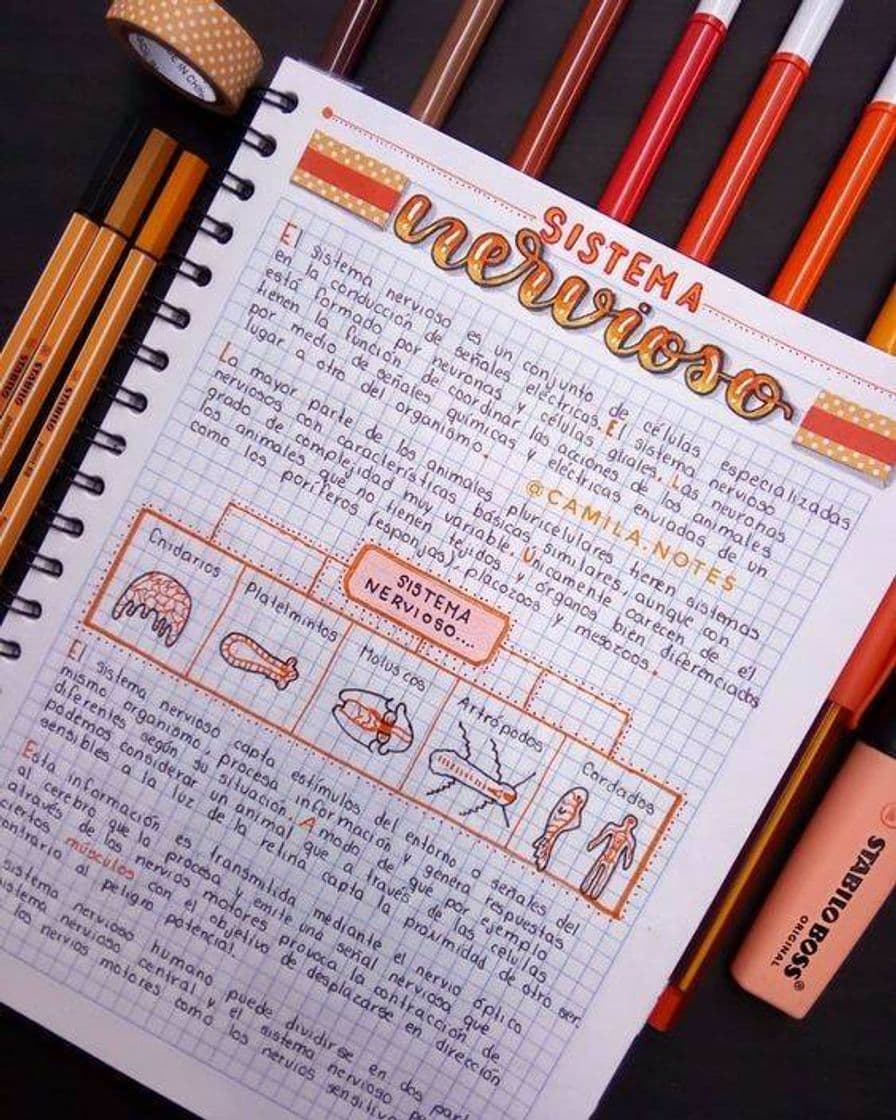 SISTEMA
nervioso
El sistema nervioso es un conjunto de células especializadas
en la conducción de señales eléctricas. El sistema nervioso
está formado por neuronas y células gliales. Las neuronas
tienen la función de coordinar las acciones de los animales
por medio de señales químicas y eléctricas enviadas de un
lugar a otro del organismo.
@CAMILA.NOTES
La mayor parte de los animales pluricelulares tienen sistemas
nerviosos con características básicas similares, aunque con
grado de complejidad muy variable. Únicamente carecen de él
los animales que no tienen tejidos y órganos bien diferenciados
como los poríferos (esponjas), placozoos y mesozoos.
SISTEMA
NERVIOSO...
Cnidarios
Platelmintos
Moluscos
Artrópodos
Cordados
El sistema nervioso capta estímulos del entorno o señales del
mismo organismo, procesa información y genera respuestas
diferentes según su situación. A modo de que por ejemplo
podemos considerar un animal que a través de las células
sensibles a la luz de la retina capta la proximidad de otro ser.
Esta información es transmitida mediante el nervio óptico
al cerebro que la procesa y emite una señal nerviosa que
a través de los nervios motores provoca la contracción de
ciertos músculos con el objetivo de desplazarse en dirección
contraria al peligro potencial.
sistema nervioso humano puede dividirse en dos
sistema nervioso central y el sistema nervioso
los nervios motores como los nervios
STABILO
STABILO
STABILO BOSS
ORIGINAL
MADE IN CHINA